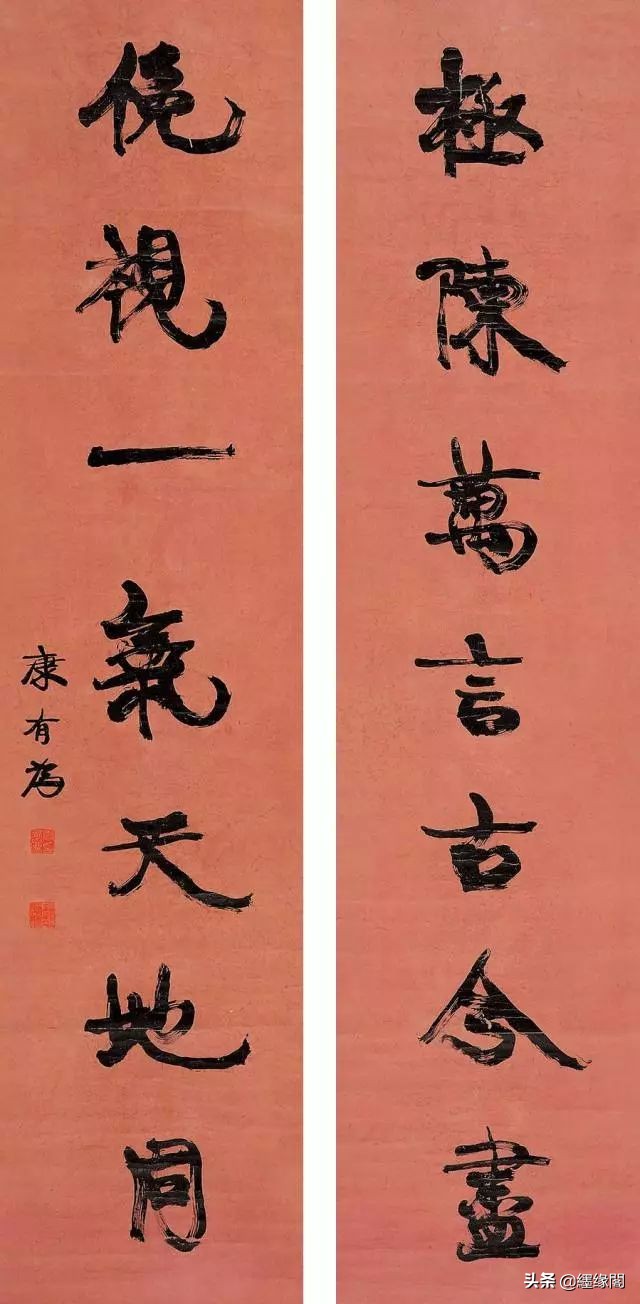 極陳萬言古今盡
俛視一氣天地同
康有為
头条 @纆缘閣